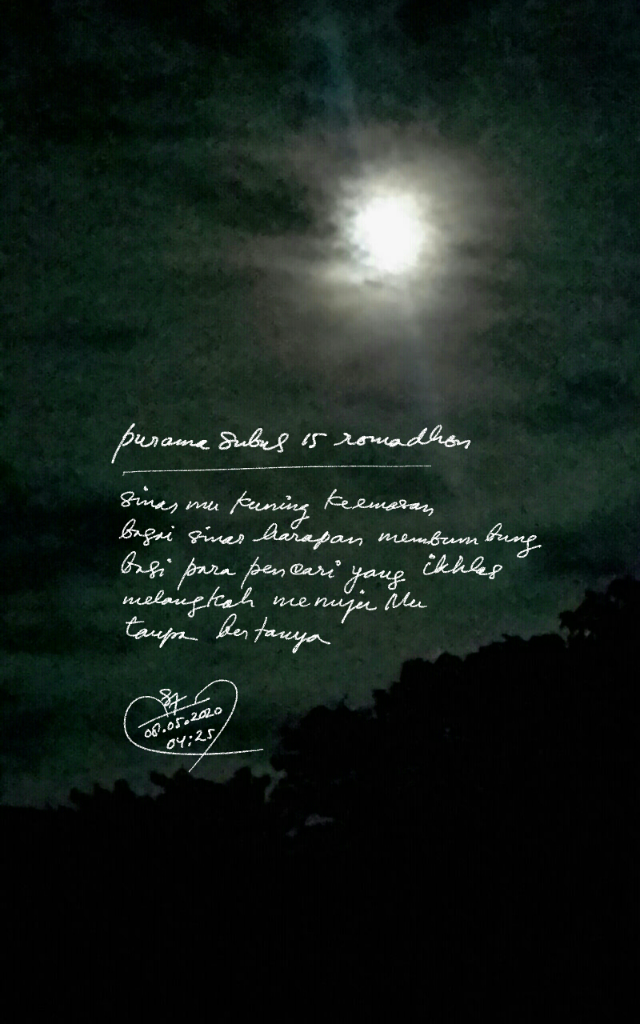 purnama subuh 15 romadhon
sinar mu kuning keemasan
bagai sinar harapan membumbung
bagi para pencari yang ikhlas
melangkah menuju Mu
tanpa bertanya
08.05.2020
04:25